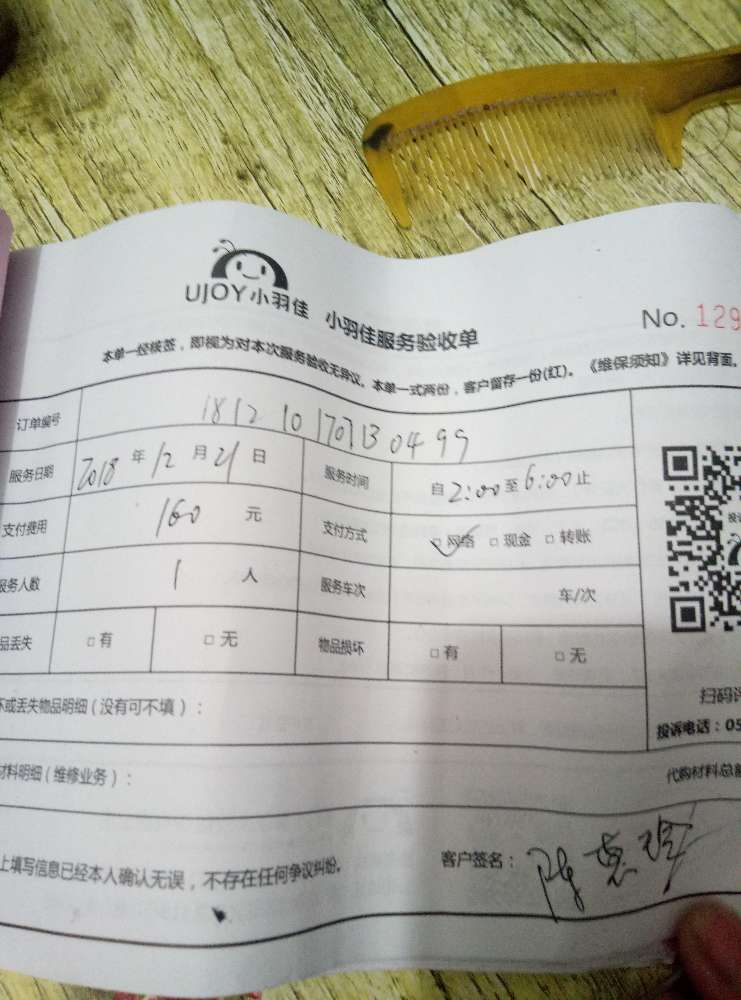 UJOY小羽佳 小羽佳服务验收单 No. 129
本单一经核签，即视为对本次服务验收无异议。本单一式两份，客户留存一份(红)。《维保须知》详见背面。
订单编号 18121017071304 99
服务日期 2018 年 12 月 21 日 服务时间 自 2:00 至 6:00 止
支付费用 160 元 支付方式 □ 网络 □ 现金 □ 转账
服务人数 1 人 服务车次 车/次
品丢失 □ 有 □ 无 物品损坏 □ 有 □ 无
坏或丢失物品明细（没有可不填）： 扫码评
投诉电话：05
材料明细（维修业务）： 代购材料总
上填写信息已经本人确认无误，不存在任何争议纠纷。 客户签名： 陈惠玲